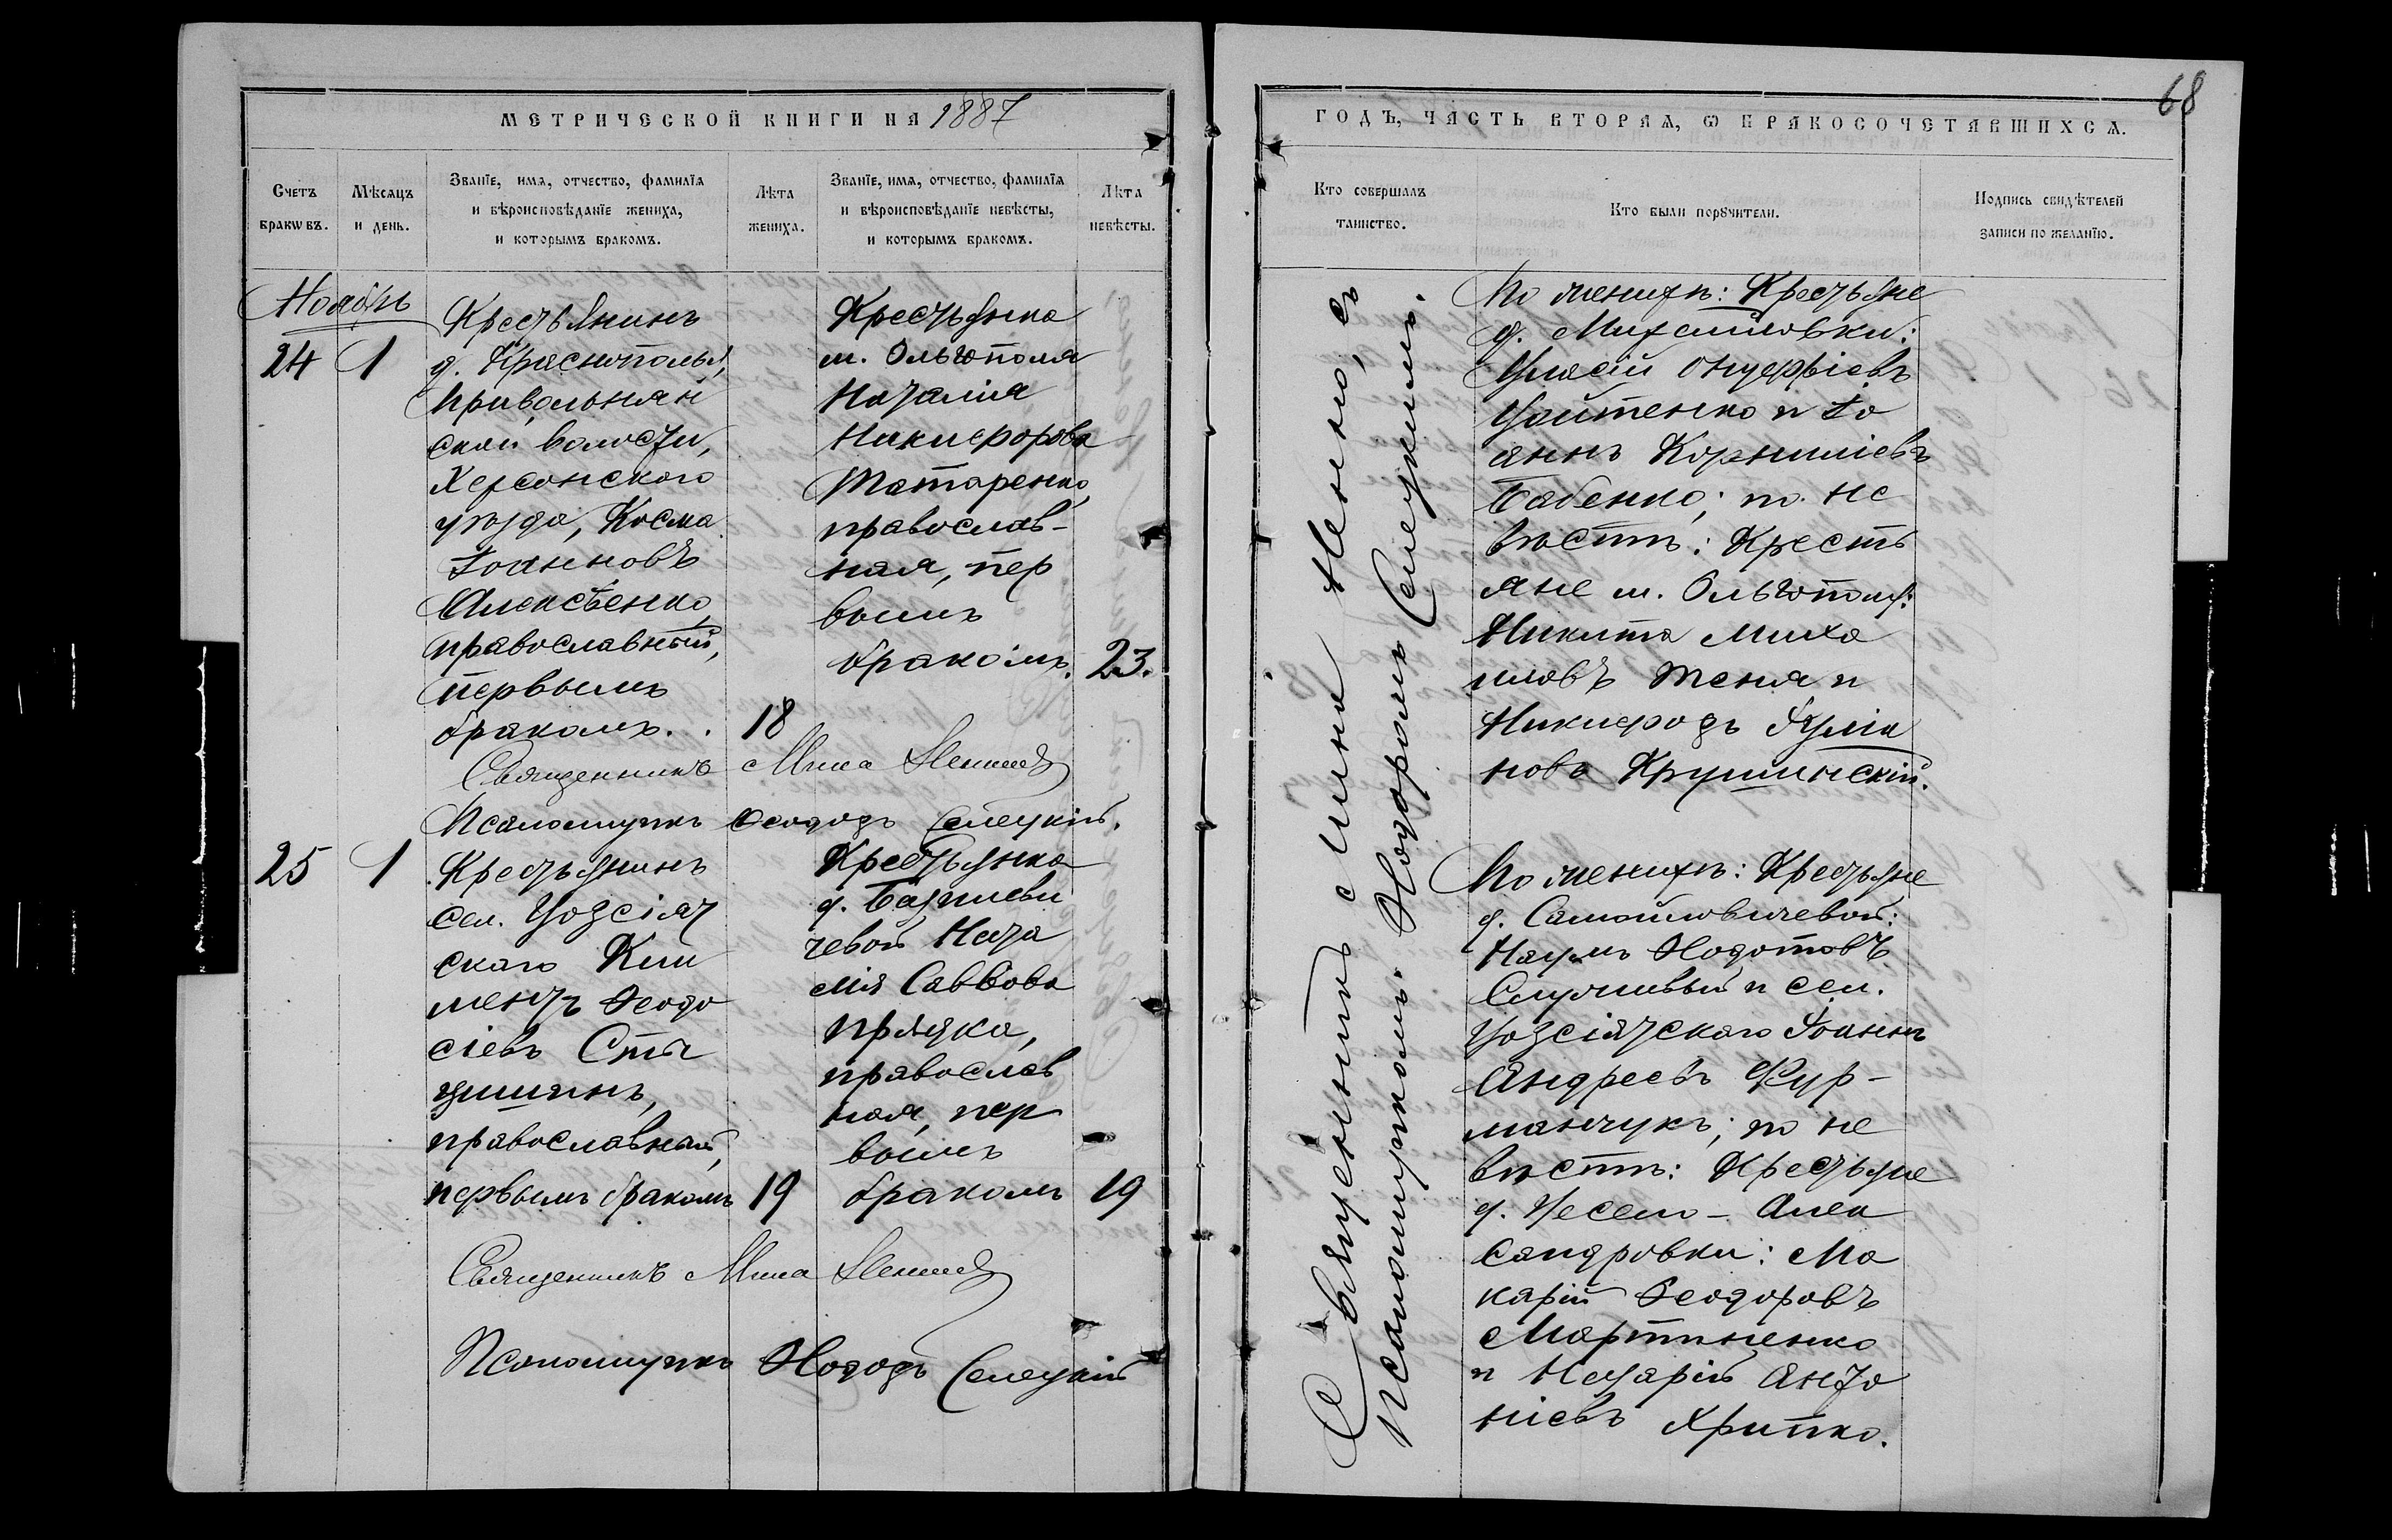 МЕТРИЧЕСКОЙ КНИГИ НА 1887
Счетъ браковъ.
Мѣсяцъ и день.
Званїе, имя, отчество, фамилїя и вѣроисповѣданїе жениха, и которымъ бракомъ.
Лѣта жениха.
Званїе, имя, отчество, фамилїя и вѣроисповѣданїе невѣсты, и которымъ бракомъ.
Лѣта невѣсты.
Ноябрь
24
1
Крестьянинъ
д. Краснополья,
Привольнян
ской волости,
Херсонского
уѣзда, Косма
Іоанновъ
Алексѣенко,
православный,
первымъ
бракомъ.
18
Крестьянка
м. Ольгополя
Наталія
Никифорова
Татаренко,
православ-
ная, пер
вымъ
бракомъ.
23.
Священникъ Мина
Псаломщикъ Ѳеодоръ Селецкій.
25
1
Крестьянинъ
сел.
скаго Кли
ментъ Ѳеодо
сіевъ
православный,
первымъ бракомъ
19
Крестьянка
д.
чевой Ната
лія Саввова
православ
ная, пер
вымъ
бракомъ
19
Священникъ Мина
Псаломщикъ Ѳеодоръ Селецкій
68
ГОДЪ, ЧАСТЬ ВТОРАЯ, Ѡ БРАКОСОЧЕТАВШИХСЯ.
Кто совершалъ таинство.
Кто были поручители.
Подпись свидѣтелей записи по желанїю.
Священникъ Мина съ
псаломщикомъ Ѳеодоромъ Селецкимъ.
По женихѣ: Крестьяне
д. Михайловки:
Власій Онуфріевъ
Войтенко и Іо
аннъ Корниліевъ
Бабенко; по не
вѣстѣ: Кресть
яне м. Ольгополя:
Никита Миха
иловъ и
Никифоръ Іуліа
новъ Крушинскій.
По женихѣ: Крестьяне
д. Самойловичевой:
Наумъ Ѳедотовъ
и сел.
Іоаннъ
Андреевъ Фур-
манчукъ; по не
вѣстѣ: Крестьяне
д. Весело-Алек
сандровки: Ма
карій Ѳеодоровъ
Мартыненко
и Назарій Анто
ніевъ Хрипко.